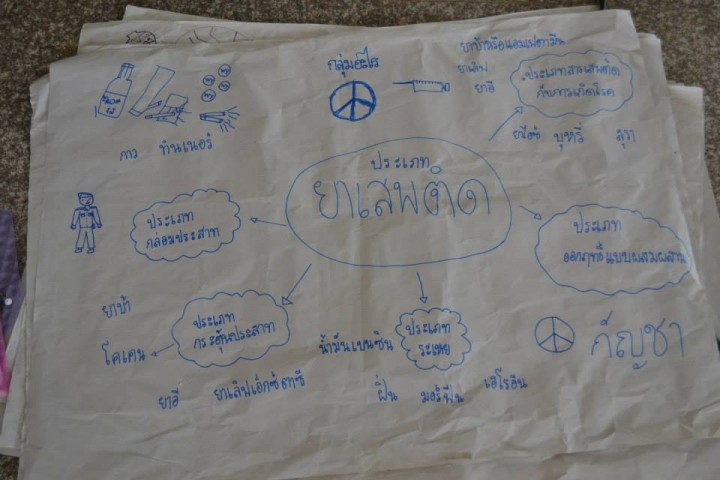 กลุ่มอะไร
ยาบ้าหรือแอมเฟตามีน
ยาเลิฟ
ยาอี
ประเภทสารเสพติด
กับการเกิดโรค
ยาไอซ์ บุหรี่ สุรา
กาว ทินเนอร์
ประเภท
ยาเสพติด
ประเภท
กล่อมประสาท
ประเภท
ออกฤทธิ์แบบผสมผสาน
กัญชา
ประเภท
กระตุ้นประสาท
ยาบ้า
โคเคน
ยาอี
ยาเลิฟเอ็กซ์ตาซี
ประเภท
ระเหย
น้ำมันเบนซิน
ฝิ่น มอร์ฟีน เฮโรอีน